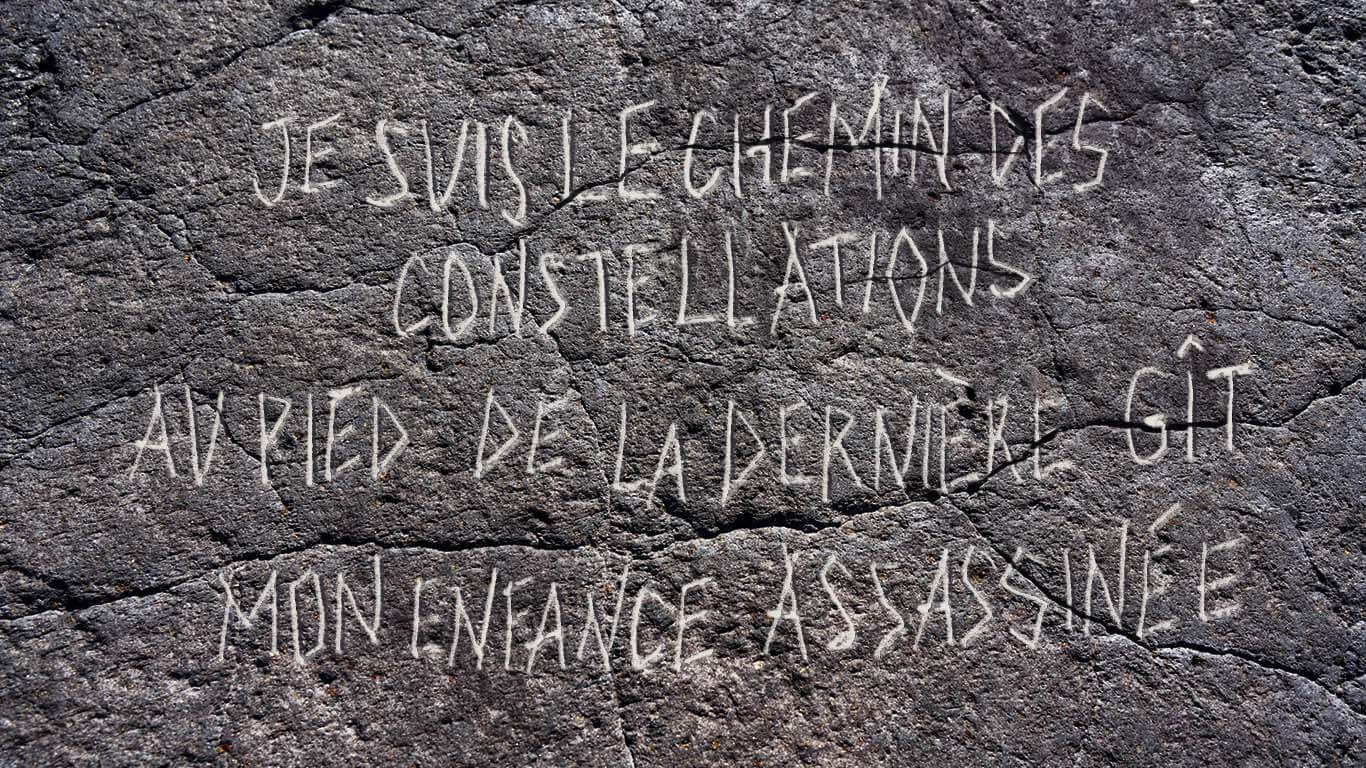 JE SUIS LE CHEMIN DES
CONSTELLATIONS
AU PIED DE LA DERNIÈRE GÎT
MON ENFANCE ASSASSINÉE